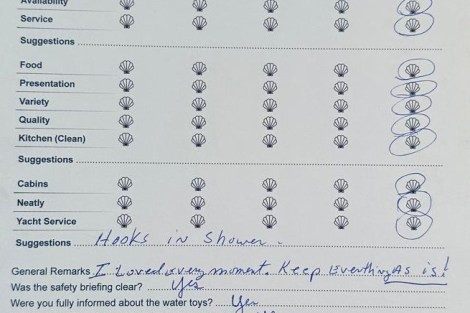 Availability
Service
Suggestions
Food
Presentation
Variety
Quality
Kitchen (Clean)
Suggestions
Cabins
Neatly
Yacht Service
Suggestions Hooks in Shower.
General Remarks I Loved every moment. Keep Everything As is!
Was the safety briefing clear? Yes
Were you fully informed about the water toys? Yes